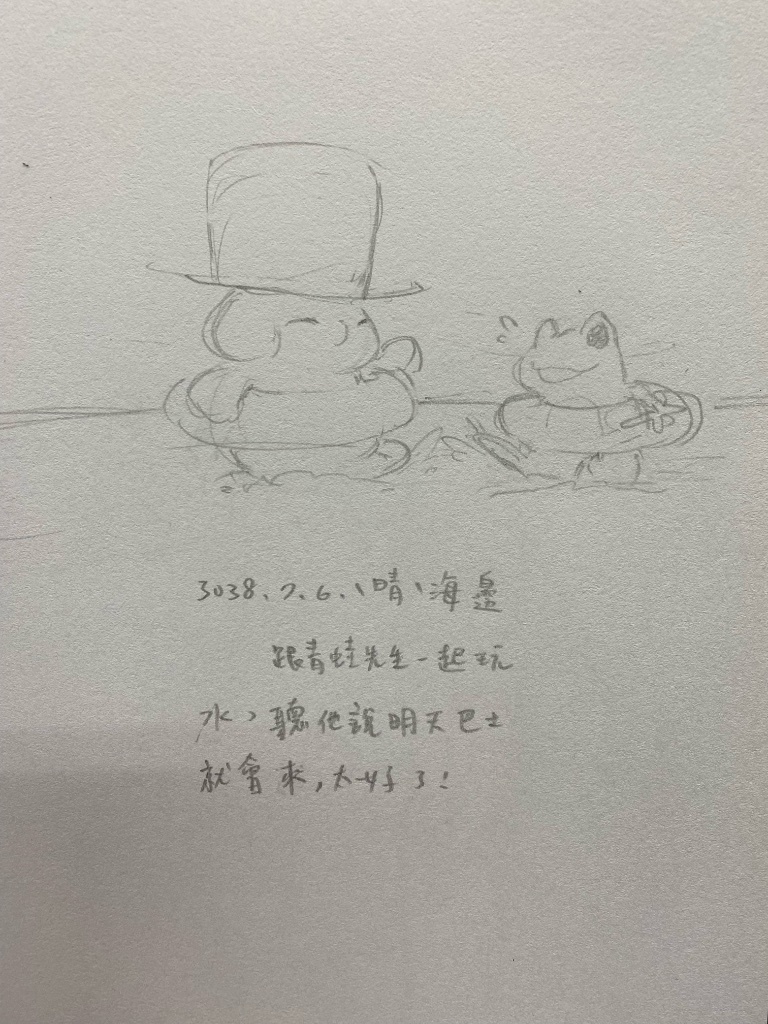 3038.7.6.、晴、海邊
跟青蛙先生一起玩
水，聽他說明天巴士
就會來，太好了！